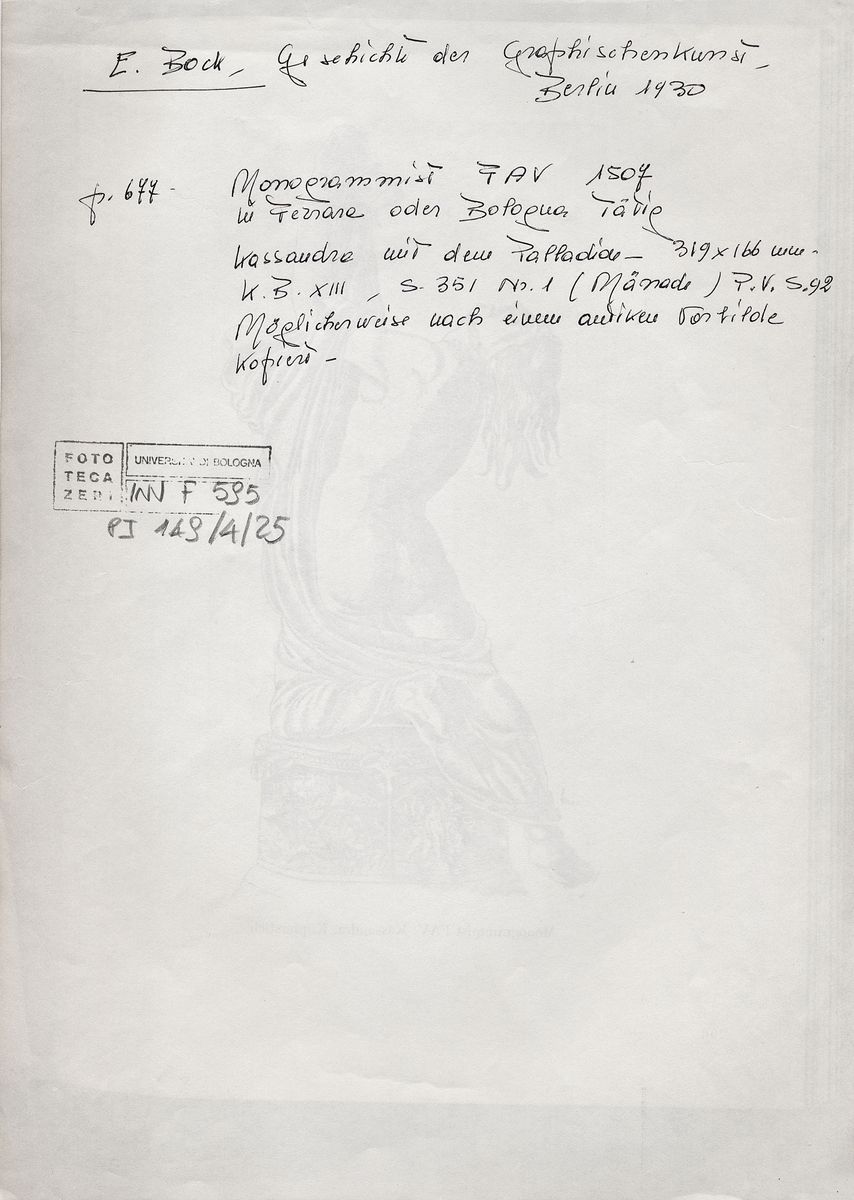 E. Bock, Geschichte der Graphischenkunst,
Berlin 1930
p. 677 - Monogrammist FAV 1507
in Ferrara oder Bologna Tätig
Kassandra mit dem Palladion - 319 x 166 mm -
K.B. XIII, S. 351 Nr. 1 (Mänade) P.V. S. 92
Möglicherweise nach einem antiken Vorbilde
Kopiert -
FOTO
TECA
ZERI
UNIVERSITÀ DI BOLOGNA
INV F 595
PI 149/4/25